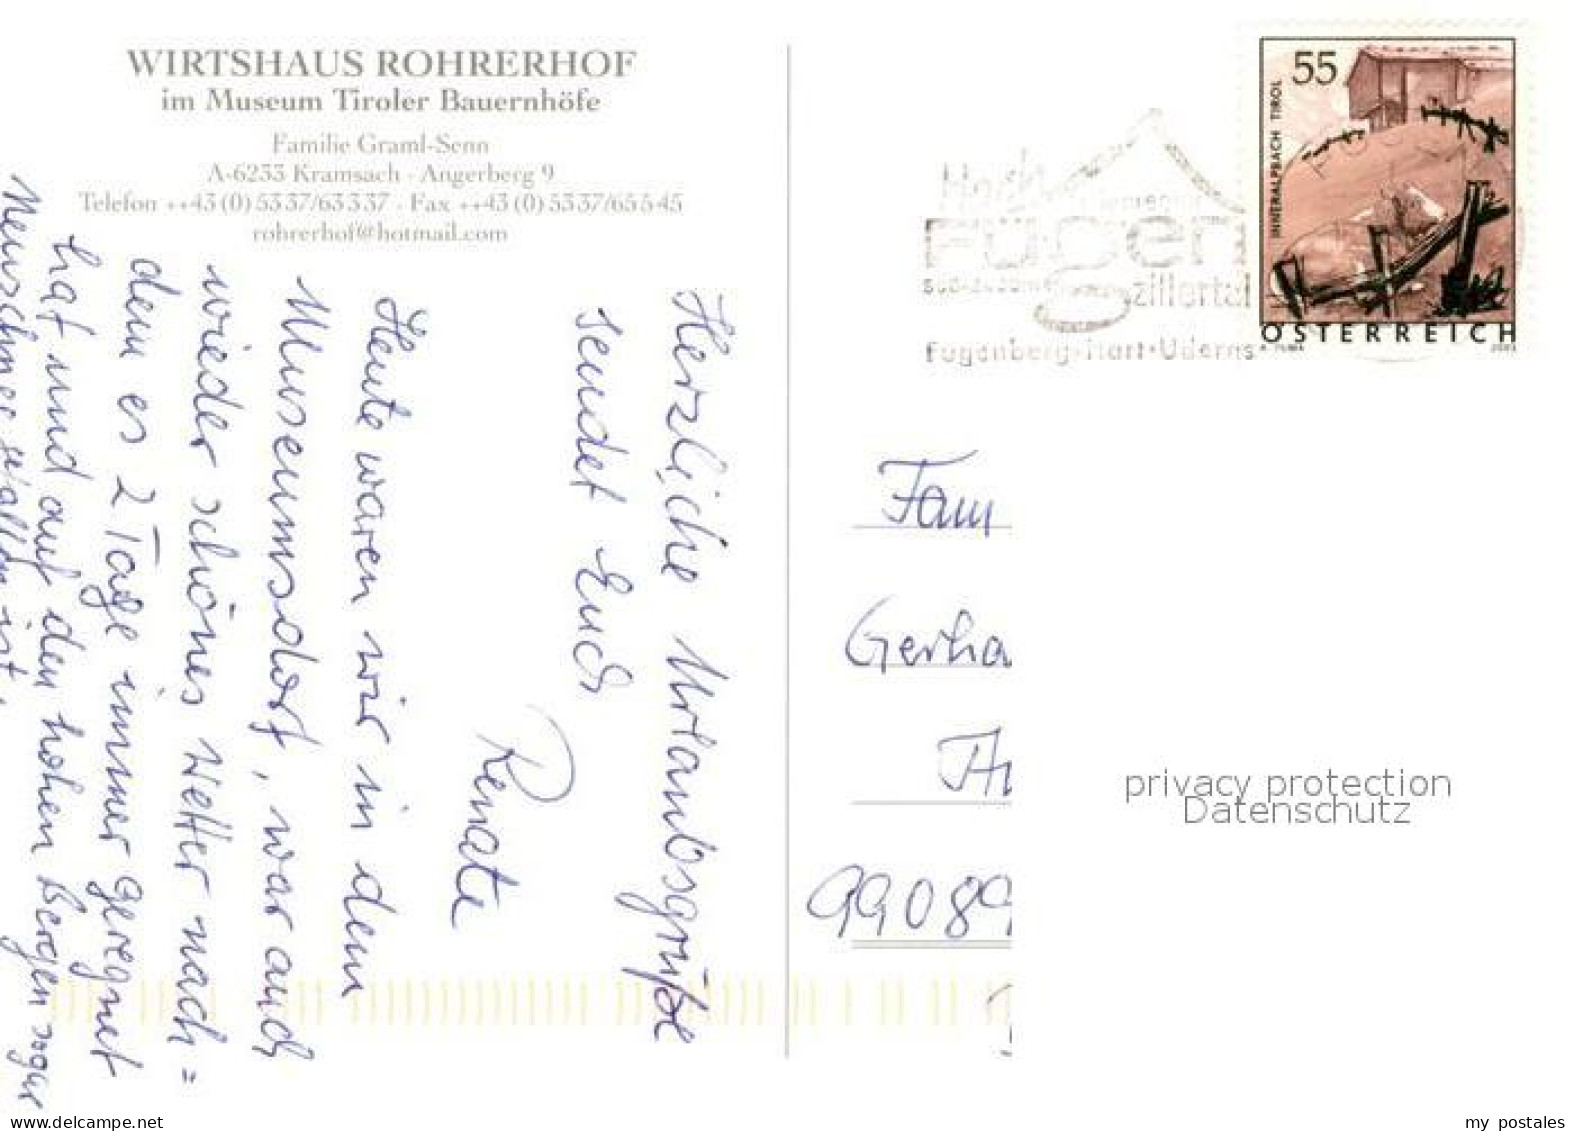 WIRTSHAUS ROHRERHOF
im Museum Tiroler Bauernhöfe
Familie Graml-Senn
A-6233 Kramsach · Angerberg 9
Telefon ++43 (0) 5337/63337 · Fax ++43 (0) 5337/65545
rohrerhof@hotmail.com
Herzliche Urlaubsgrüße
sendet Euch
Renate
Heute waren wir in dem
Museumsdorf, war auch
wieder schönes Wetter nach=
dem es 2 Tage immer geregnet
hat und auf den hohen Bergen sogar
Neuschnee gefallen ist.
55
INNERALPBACH TIROL
ÖSTERREICH
2002
Hoch
Fügen
zillertal
Fügenberg·Hart·Uderns
Fam
Gerha
99089
privacy protection
Datenschutz
www.delcampe.net
my_postales